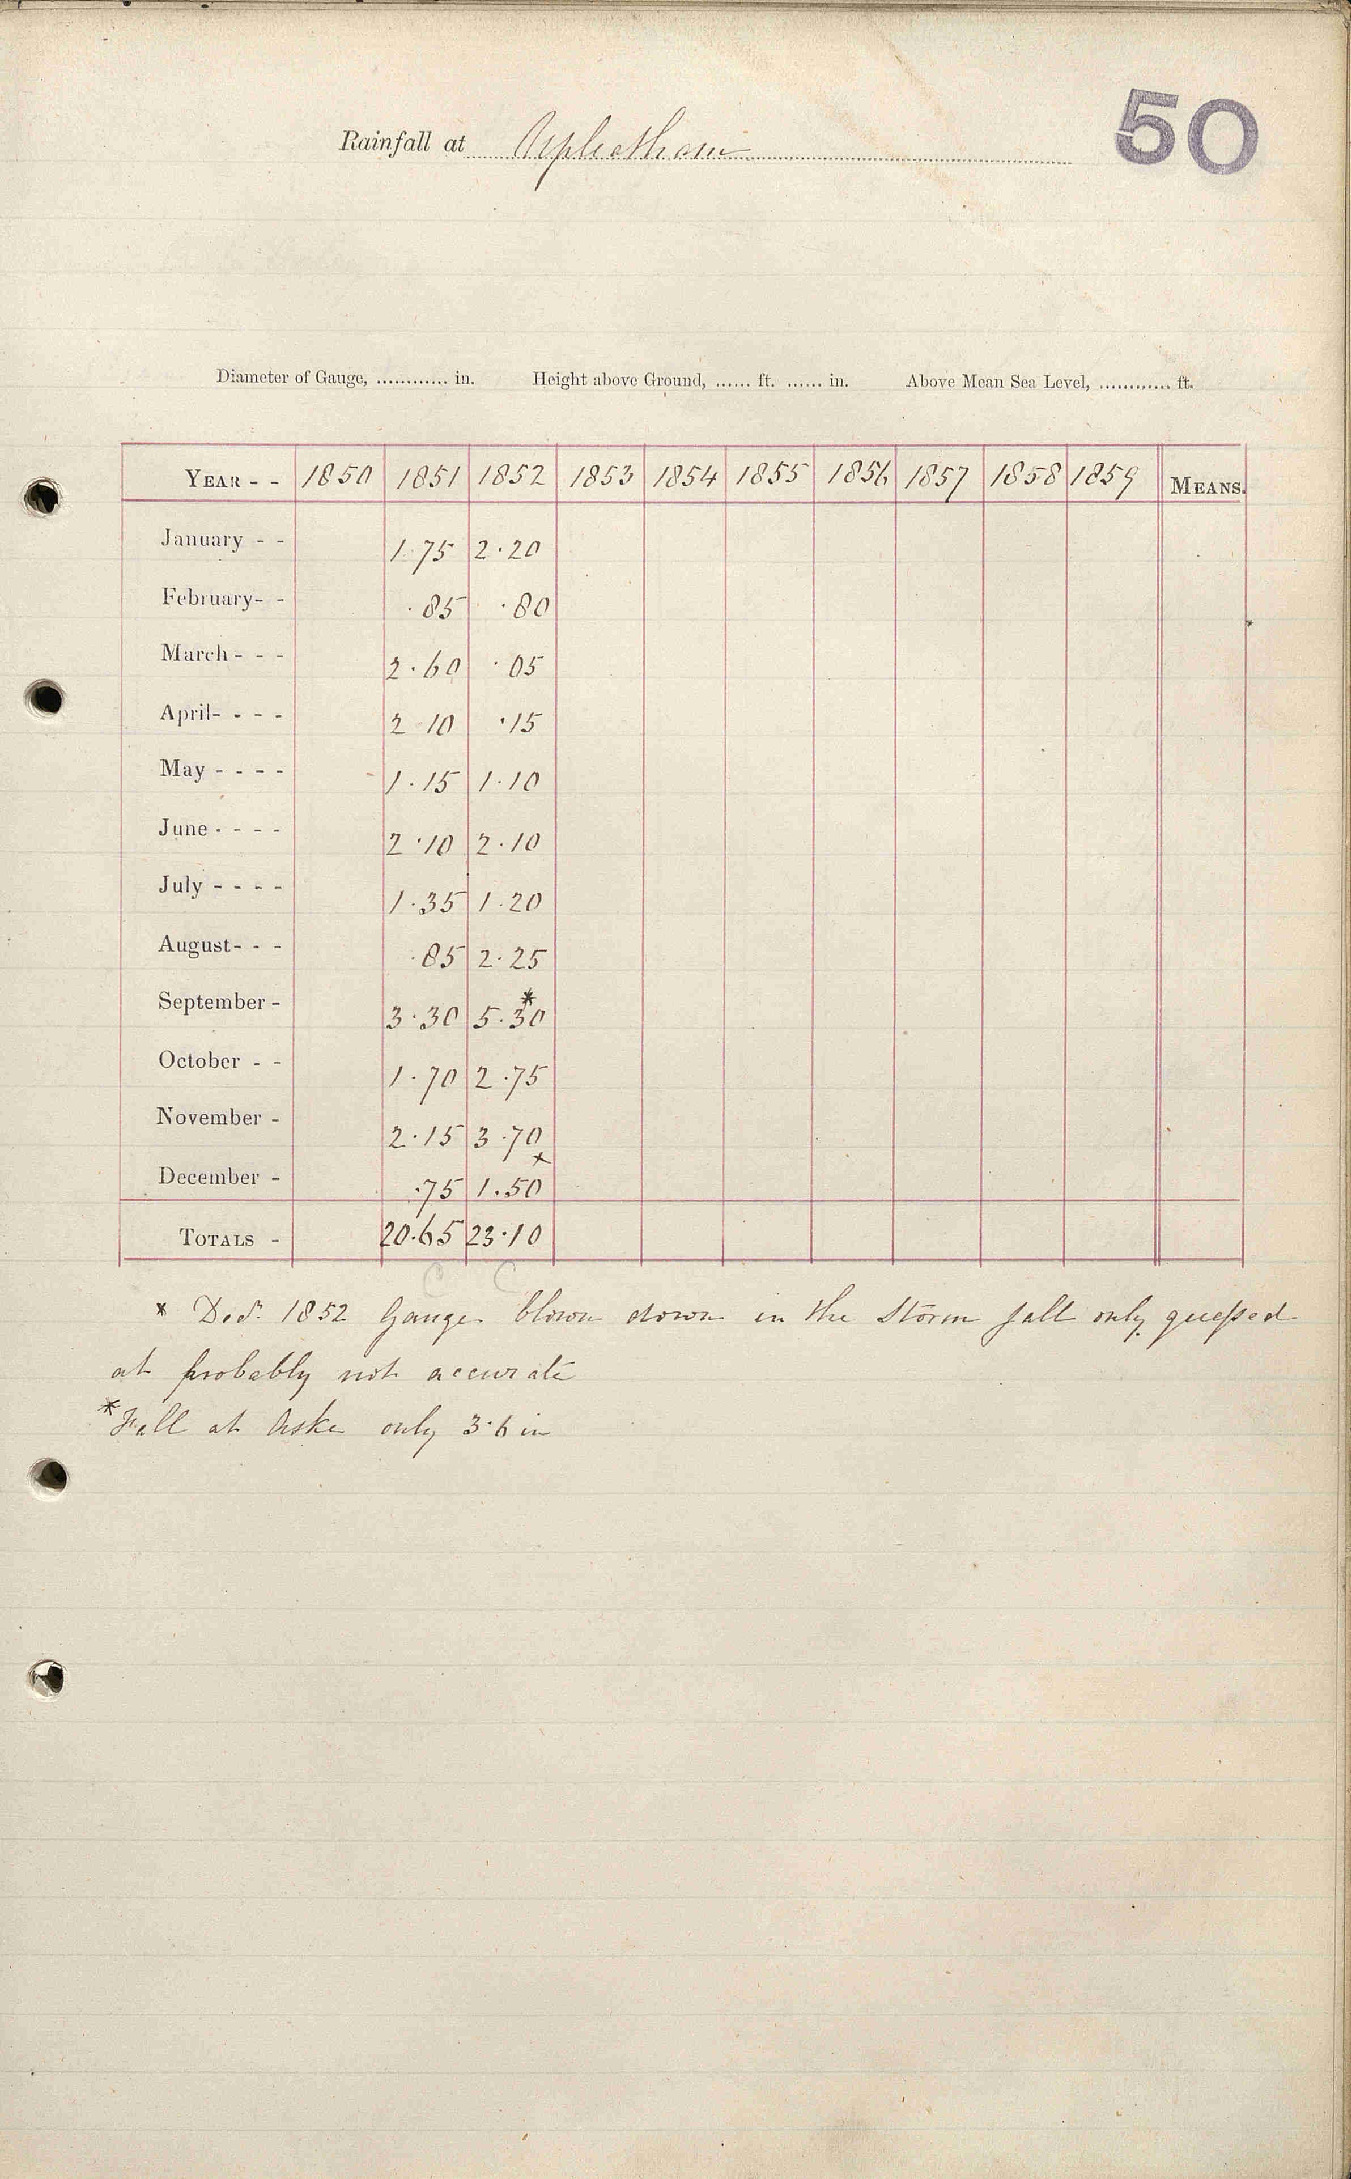 50
Rainfall at Upleatham
Diameter of Gauge, ............ in. Height above Ground, ...... ft. ...... in. Above Mean Sea Level, ............ ft.
YEAR - - 1850 1851 1852 1853 1854 1855 1856 1857 1858 1859 MEANS.
January - - 1.75 2.20
February- - .85 .80
March - - - 2.60 .05
April- - - - 2 10 .15
May - - - - 1.15 1.10
June - - - - 2.10 2.10
July - - - - 1.35 1.20
August- - - .85 2.25
September - 3.30 5.30*
October - - 1.70 2.75
November - 2.15 3.70
December - .75 1.50x
TOTALS - 20.65 23.10
C C
x Decr. 1852 Gauge blown down in the Storm fall only guessed
at probably not accurate
*Fall at Aske only 3.6 in